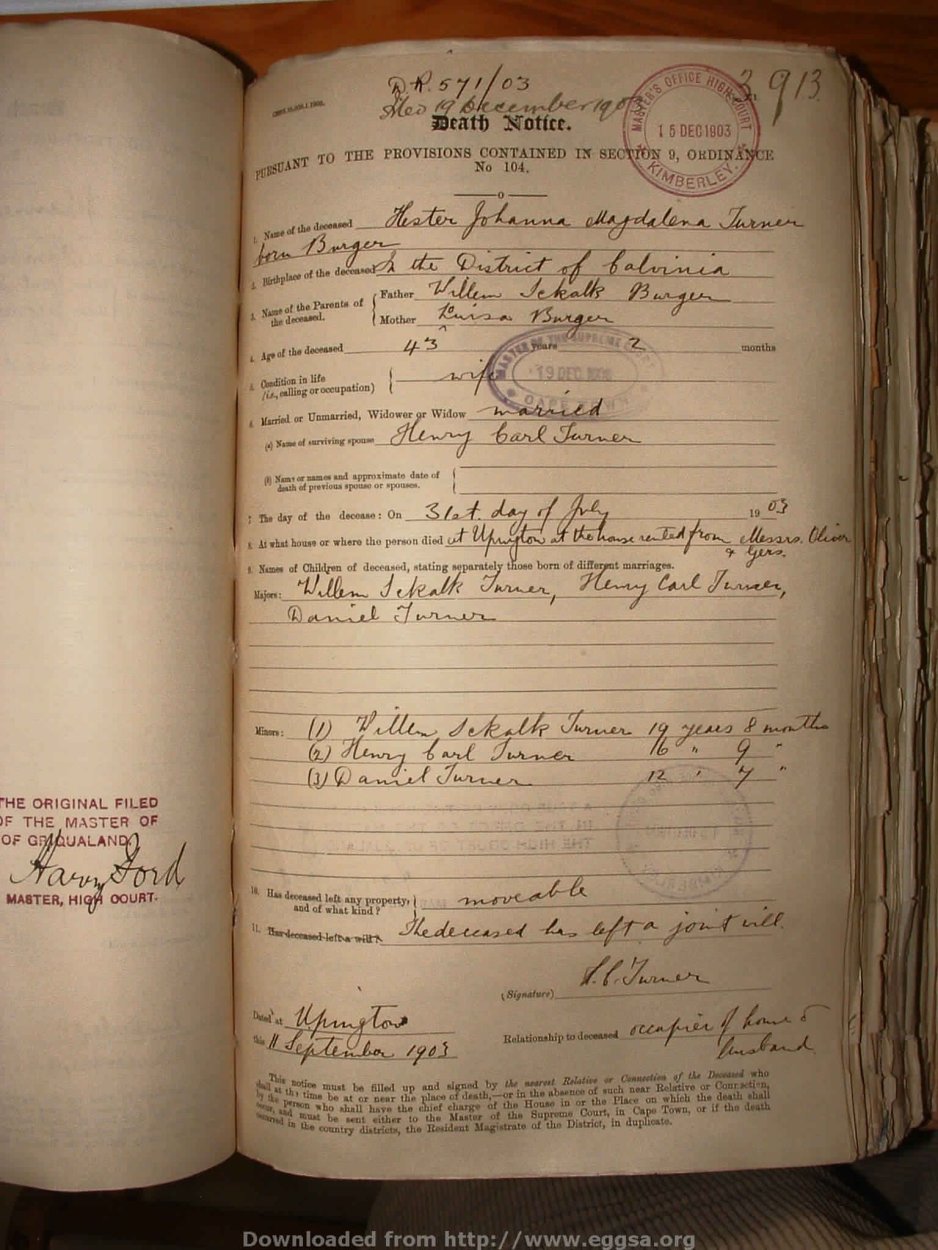 D.R. 571/03
3913
Filed 19 December 1903
Death Notice.
MASTER'S OFFICE HIGH COURT
15 DEC 1903
KIMBERLEY.
PURSUANT TO THE PROVISIONS CONTAINED IN SECTION 9, ORDINANCE
No 104.
1. Name of the deceased Hester Johanna Magdalena Turner
born Burger
2. Birthplace of the deceased In the District of Calvinia
3. Name of the Parents of the deceased. Father Willem Schalk Burger
Mother Louisa Burger
4. Age of the deceased 43 years 2 months
MASTER OF THE SUPREME COURT
19 DEC 1903
CAPE TOWN
5. Condition in life
(i.e., calling or occupation) wife
6. Married or Unmarried, Widower or Widow married
(a) Name of surviving spouse Henry Carl Turner
(b) Name or names and approximate date of
death of previous spouse or spouses.
7. The day of the decease: On 31st. day of July 1903
8. At what house or where the person died at Upington at the house rented from Messrs. Olivier
& Gers.
9. Names of Children of deceased, stating separately those born of different marriages.
Majors: Willem Schalk Turner, Henry Carl Turner,
Daniel Turner
Minors: (1) Willem Schalk Turner 19 years 8 months
(2) Henry Carl Turner 16 " 9 "
(3) Daniel Turner 12 " 7 "
THE ORIGINAL FILED
OF THE MASTER OF
OF GRIQUALAND
Harry Ford
MASTER, HIGH COURT.
10. Has deceased left any property,
and of what kind? moveable
11. Has deceased left a will? The deceased has left a joint will.
(Signature) H. C. Turner
Dated at Upington
this 11 September 1903
Relationship to deceased occupier of house &
husband
This notice must be filled up and signed by the nearest Relative or Connection of the Deceased who
shall at the time be at or near the place of death,—or in the absence of such near Relative or Connection,
by the person who shall have the chief charge of the House in or the Place on which the death shall
occur, and must be sent either to the Master of the Supreme Court, in Cape Town, or if the death
occurred in the country districts, the Resident Magistrate of the District, in duplicate.
Downloaded from http://www.eggsa.org